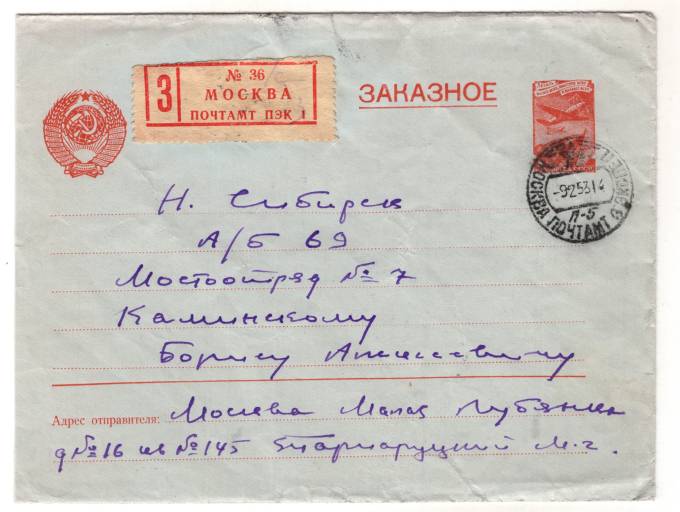 З
№ 36
МОСКВА
ПОЧТАМТ ПЭК 1
ЗАКАЗНОЕ
МОСКВА ПОЧТАМТ
-925314
П-5
Н. Сибирск
А/Б 69
Мостоотряд № 7
Каминскому
Борису
Адрес отправителя: Москва Малая Лубянка
д№16 кв №145